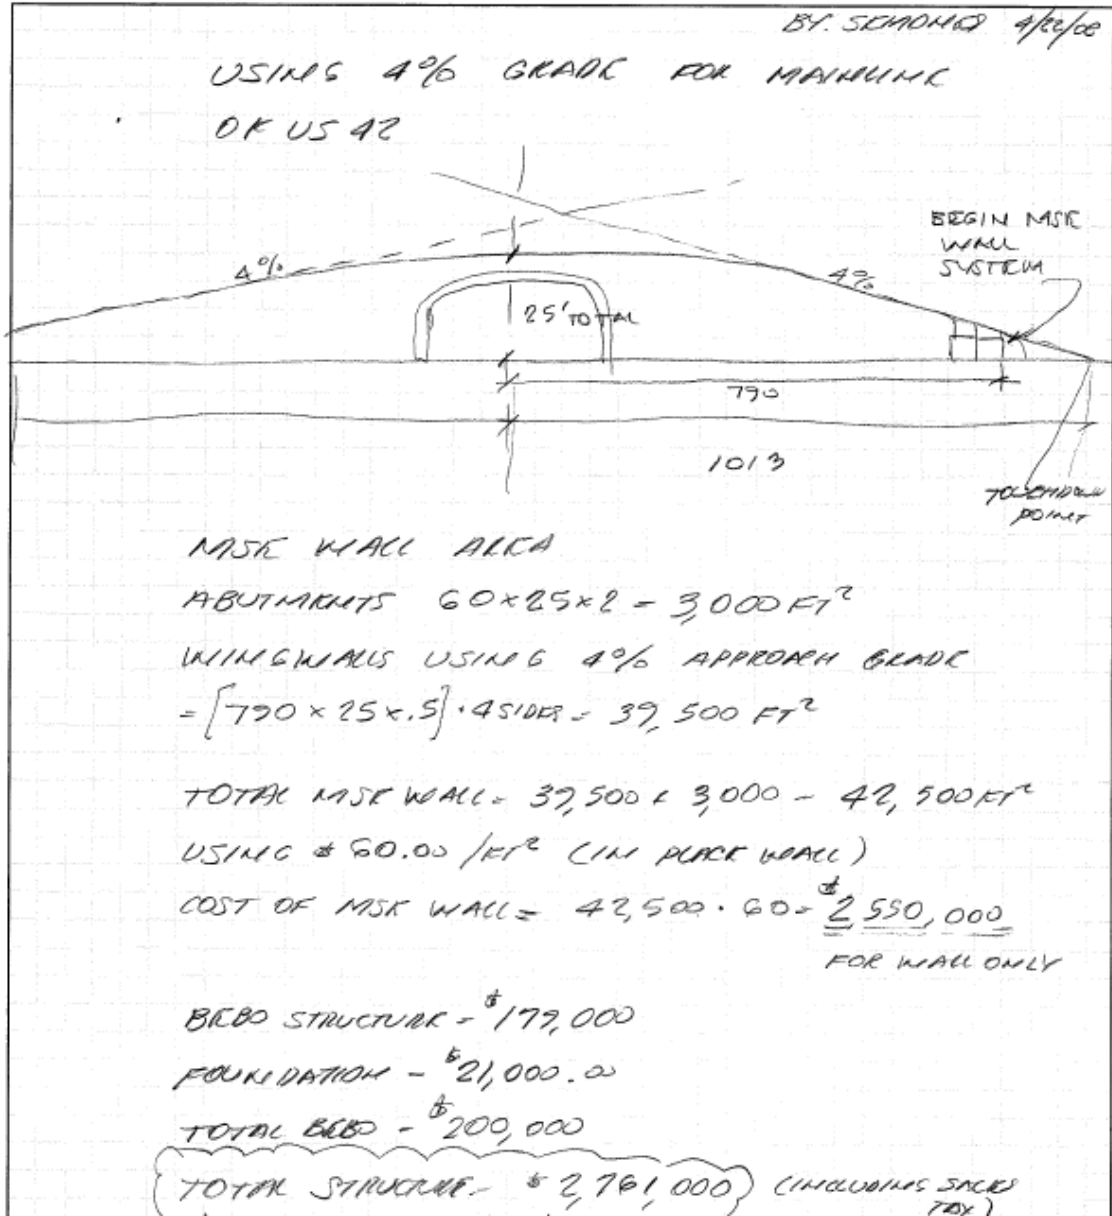 BY: SKMOMED 4/22/08
USING 4% GRADE FOR MAINLINE
OF US 42
BEGIN MSE
WALL
SYSTEM
4%
4%
25' TOTAL
790
1013
TOUCHDOWN
POINT
MSE WALL AREA
ABUTMENTS 60x25x2 = 3,000 FT²
WINGWALLS USING 4% APPROACH GRADE
= [790 x 25 x .5] · 4 SIDES = 39,500 FT²
TOTAL MSE WALL = 39,500 + 3,000 = 42,500 FT²
USING $60.00 /FT² (IN PLACE WALL)
COST OF MSE WALL = 42,500 · 60 = $2,550,000
FOR WALL ONLY
BEBO STRUCTURE = $179,000
FOUNDATION - $21,000.00
TOTAL BEBO - $200,000
TOTAL STRUCTURE - $2,761,000 (INCLUDING SALES
TAX)